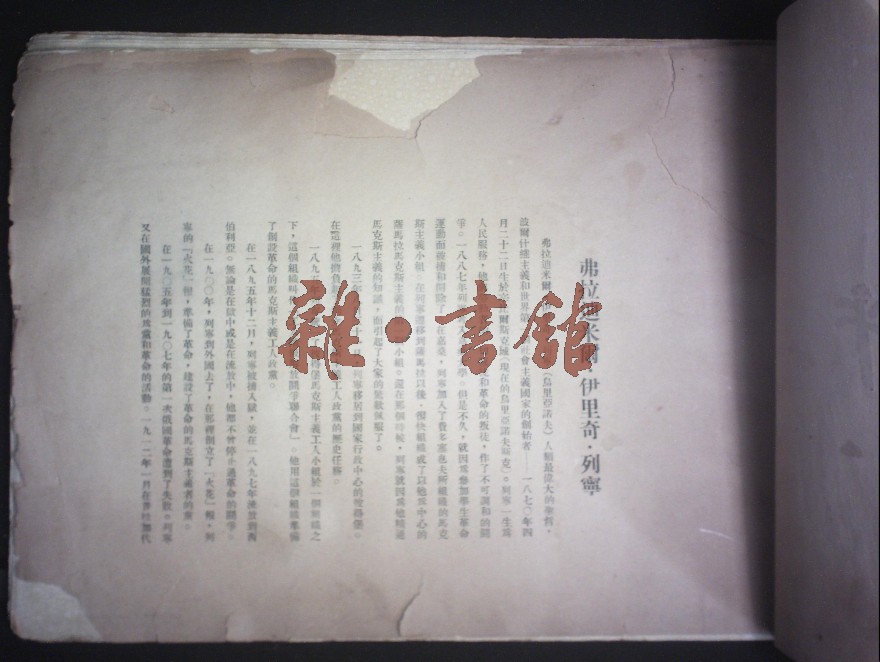 弗拉迪米爾·伊里奇·列寧
弗拉迪米爾（烏里亞諾夫）人類最偉大的聖哲，
波爾什維主義和世界第社會主義國家的創始者——一八七〇年四
月二十二日生於爾斯克城（現在的烏里亞諾夫斯克）。列寧一生爲
人民服務，他和革命的叛徒，作了不可調和的鬪
爭。一八八七年列學。但是不久，就因爲參加學生革命
運動而被捕和開除了嘉桑，列寧加入了費多塞也夫所組織的馬克
斯主義小組。在列寧遷移到薩馬拉以後，很快組織成了以他爲中心的
薩馬拉馬克斯主義小組。還在那個時候，列寧就因爲他精通
馬克斯主義的知識，而引起了大家的驚歎佩服了。
一八九三列寧移居到國家行政中心的彼得堡。
在這裡他擔負工人政黨的歷史任務。
一八九得堡馬克斯主義工人小組於一個組織之
下，這個組織叫鬪爭聯合會」。他用這個組織準備
了創設革命的馬克斯主義工人政黨。
在一八九五年十二月，列寧被捕入獄，並在一八九七年流放到西
伯利亞。無論是在獄中或是在流放中，他都不曾停止過革命的鬪爭。
在一九〇〇年，列寧到外國去了，在那裡創立了「火花」報，列
寧的「火花」報，準備了革命，建設了革命的馬克斯主義者的黨。
在一九〇五年到一九〇七年的第一次俄國革命遭到了失敗。列寧
又在國外展開猛烈的爲黨和革命的活動。一九一二年一月在普拉加代
雜·書館